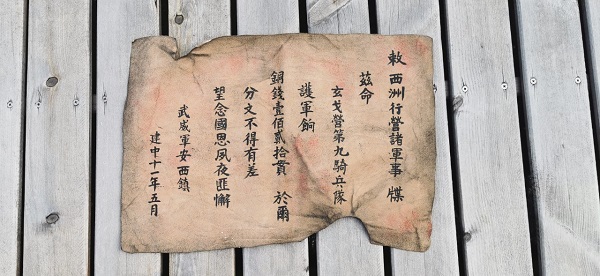 敕 西洲行營諸軍事 牒
茲命
玄戈營第九騎兵隊
護軍餉
銅錢壹佰貳拾貫 於爾
分文不得有差
望念國恩夙夜匪懈
武威軍安西鎮
建中十一年五月